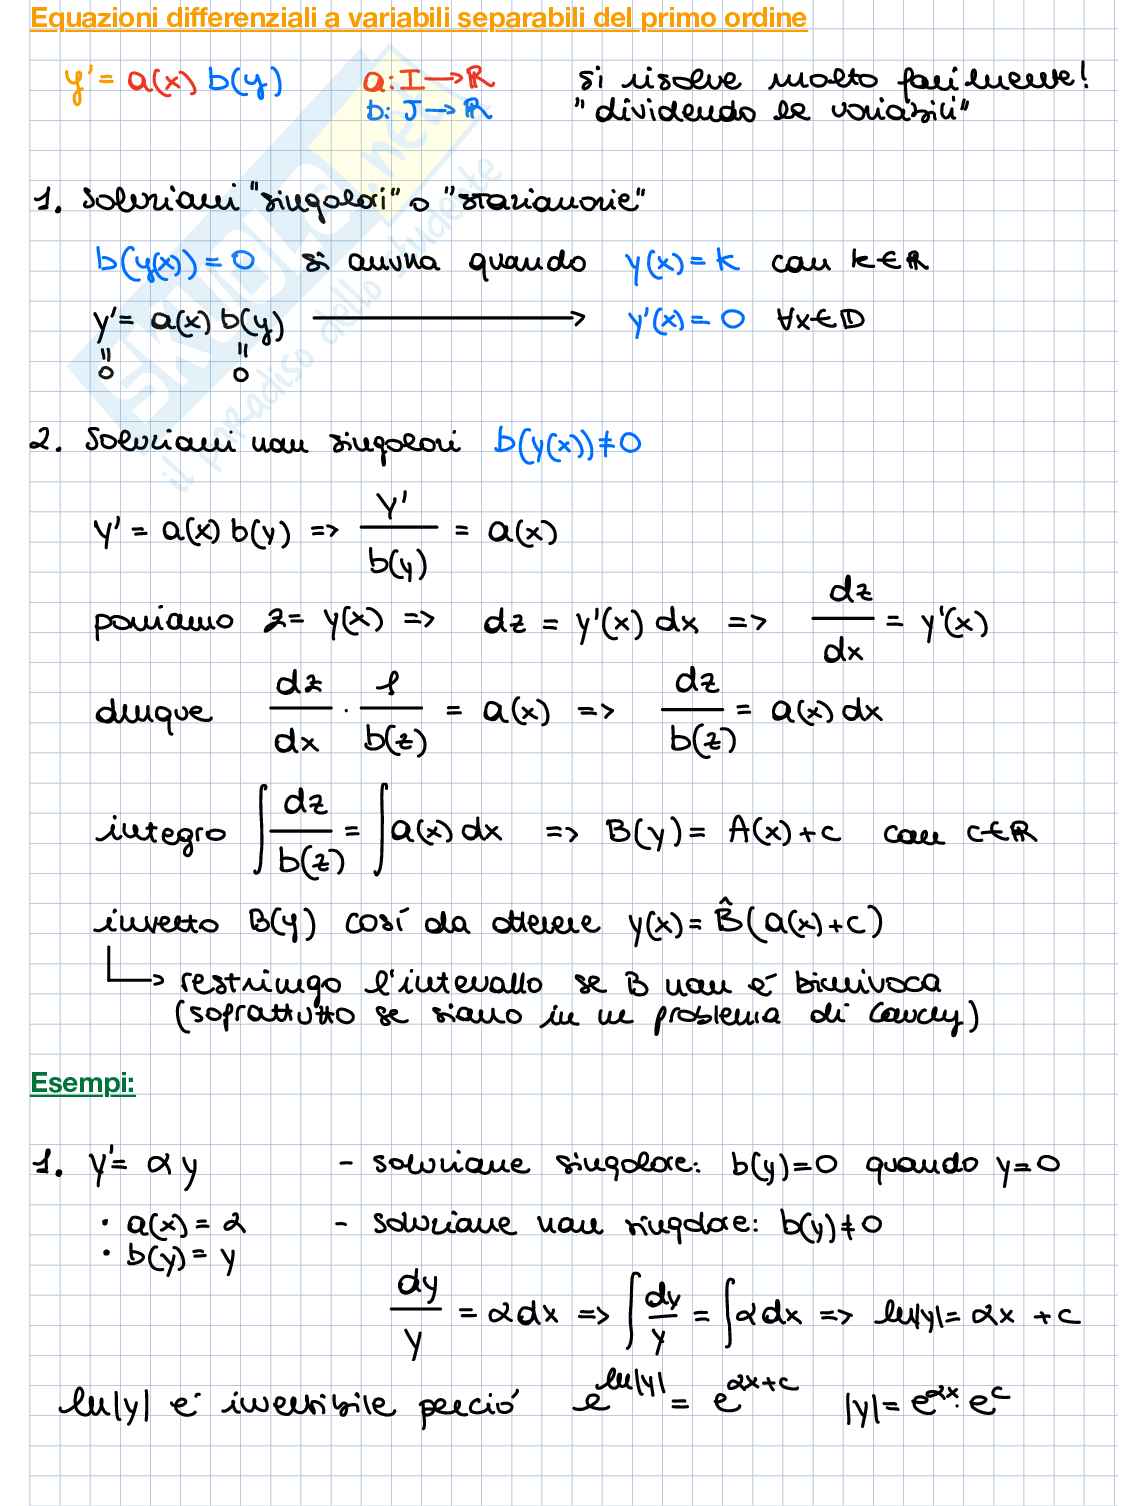 Equazioni differenziali a variabili separabili del primo ordine
y' = a(x) b(y) a: I → ℝ si risolve molto facilmente!
b: J → ℝ "dividendo le variabili"
1. Soluzioni "singolari" o "stazionarie"
b(y(x)) = 0 si annulla quando y(x) = k con k ∈ ℝ
y' = a(x) b(y) → y'(x) = 0 ∀x ∈ D
" "
0 0
2. Soluzioni non singolari b(y(x)) ≠ 0
y' = a(x) b(y) => y'/b(y) = a(x)
poniamo z = y(x) => dz = y'(x) dx => dz/dx = y'(x)
dunque dz/dx · 1/b(z) = a(x) => dz/b(z) = a(x) dx
integro ∫ dz/b(z) = ∫ a(x) dx => B(y) = A(x) + c con c ∈ ℝ
inverto B(y) così da ottenere y(x) = B̂(a(x) + c)
↳ restringo l'intervallo se B non è biunivoca
(soprattutto se siamo in un problema di Cauchy)
Esempi:
1. y' = αy - soluzione singolare: b(y) = 0 quando y = 0
· a(x) = α - soluzione non singolare: b(y) ≠ 0
· b(y) = y
dy/y = α dx => ∫ dy/y = ∫ α dx => ln|y| = αx + c
ln|y| è invertibile perciò e^{ln|y|} = e^{αx+c} |y| = e^{αx} · e^c
SKUOLA.net
il paradiso dello studente